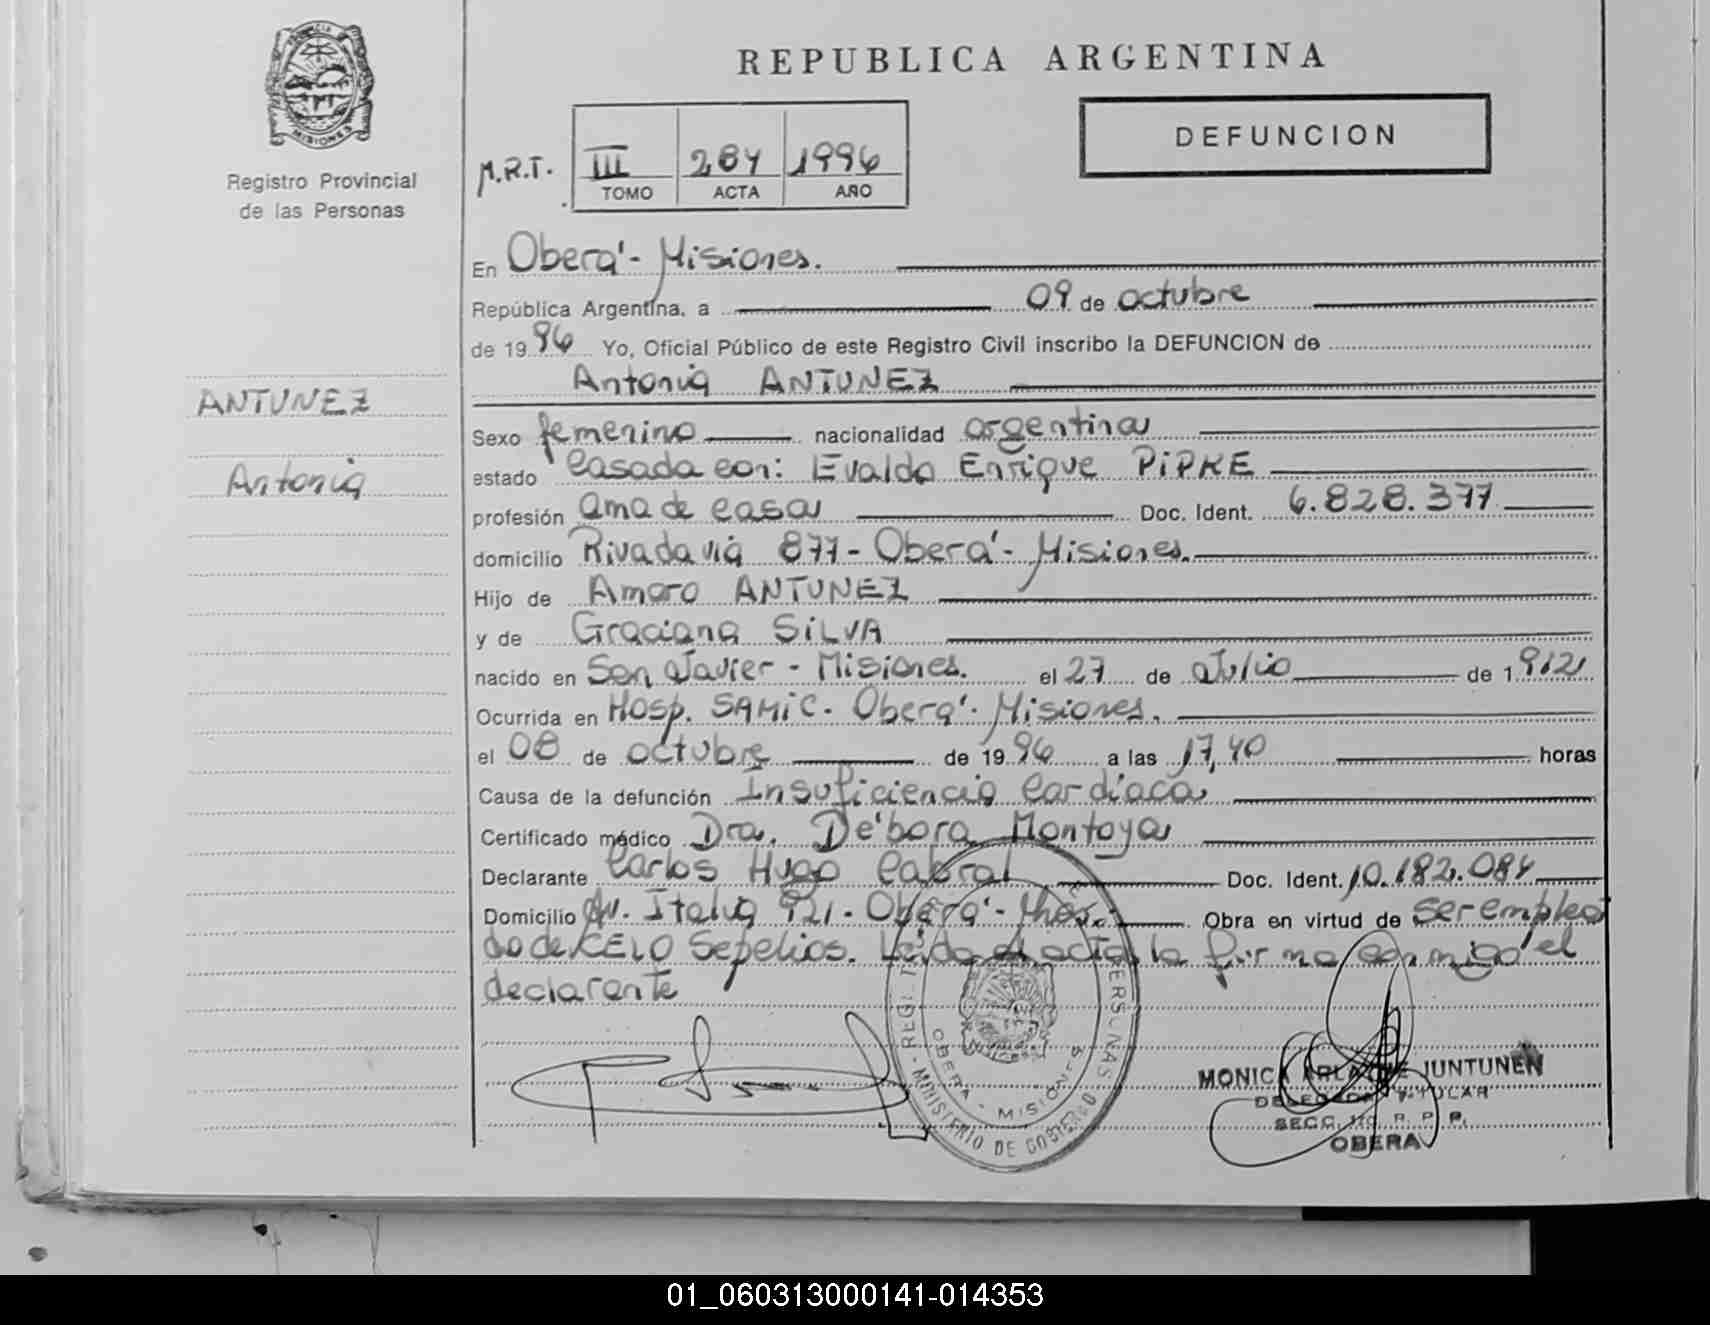 PROVINCIA DE
MISIONES
Registro Provincial
de las Personas
ANTUNEZ
Antonia
REPUBLICA ARGENTINA
DEFUNCION
M.R.T. III 284 1996
TOMO ACTA AÑO
En Oberá - Misiones.
República Argentina, a 09 de octubre
de 1996 Yo, Oficial Público de este Registro Civil inscribo la DEFUNCION de
Antonia ANTUNEZ
Sexo femenino nacionalidad argentina
estado Casada con: Evaldo Enrique PIPKE
profesión ama de casa Doc. Ident. 6.828.377
domicilio Rivadavia 877 - Oberá - Misiones.
Hijo de Amaro ANTUNEZ
y de Graciana SILVA
nacido en San Javier - Misiones. el 27 de Julio de 1912
Ocurrida en Hosp. SAMIC. Oberá. Misiones.
el 08 de octubre de 1996 a las 17,40 horas
Causa de la defunción Insuficiencia Cardíaca
Certificado médico Dra. Débora Montoya
Declarante Carlos Hugo Cabral Doc. Ident. 10.182.084
Domicilio Av. Italia 921 - Oberá - Mnes. Obra en virtud de ser emplea
do de CELO Sepelios. Leída el acta, la firma conmigo el
declarante
MINISTERIO DE GOBIERNO
OBERA - MISIONES
MONICA JUNTUNEN
DELEGADA TITULAR
SECC. R. P. P.
OBERA
01_060313000141-014353